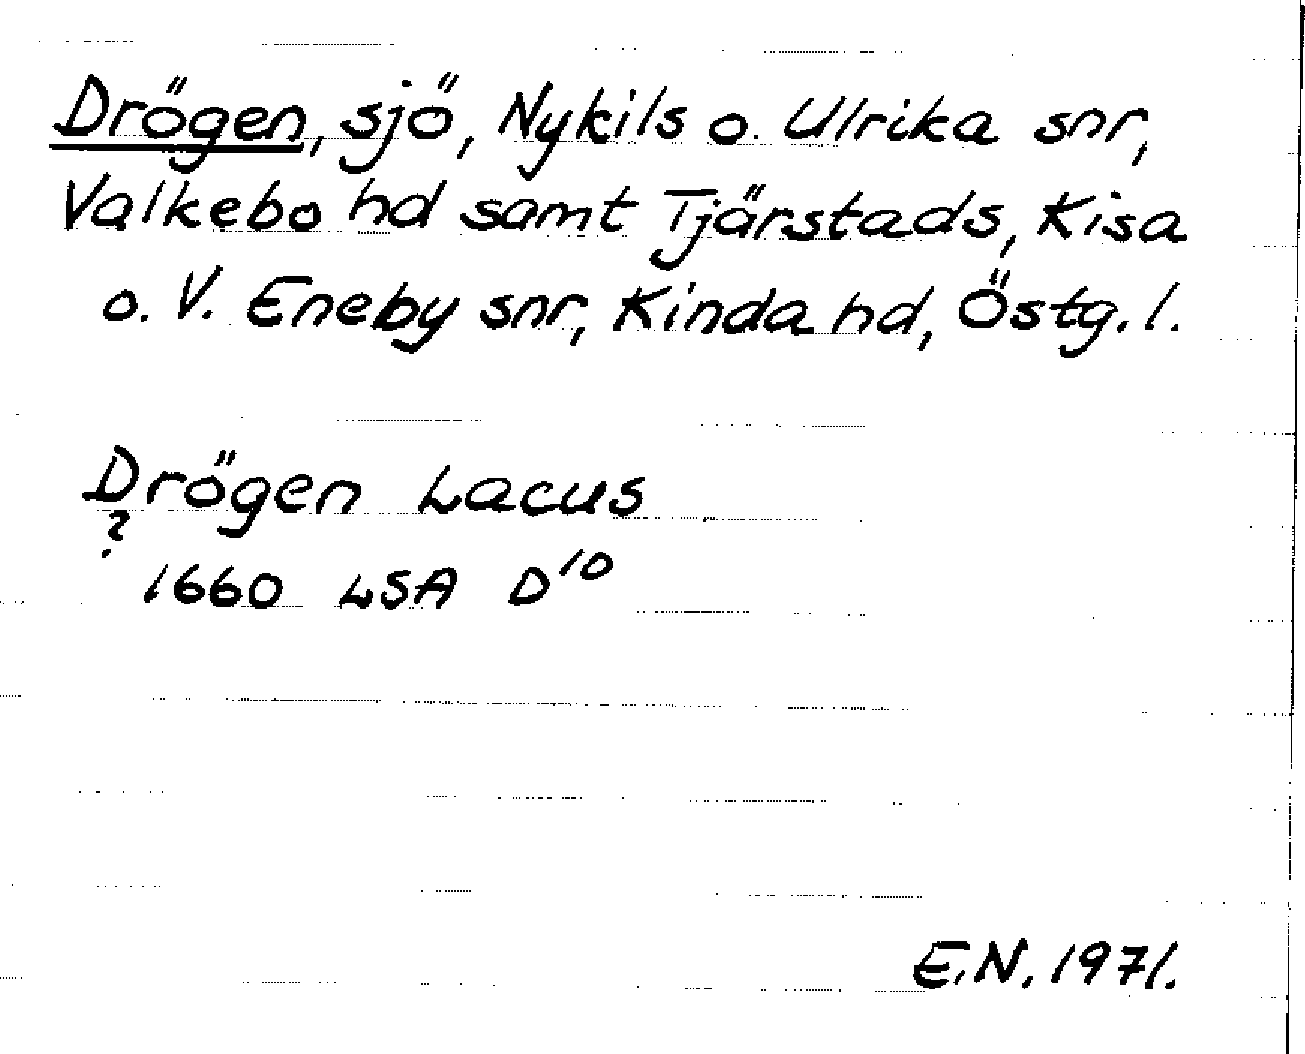 Drögen, sjö, Nykils o. Ulrika snr,
Valkebo hd samt Tjärstads, Kisa
o. V. Eneby snr, Kinda hd, Östg. l.
Drögen Lacus
?
1660 LSA D10
E.N. 1971.